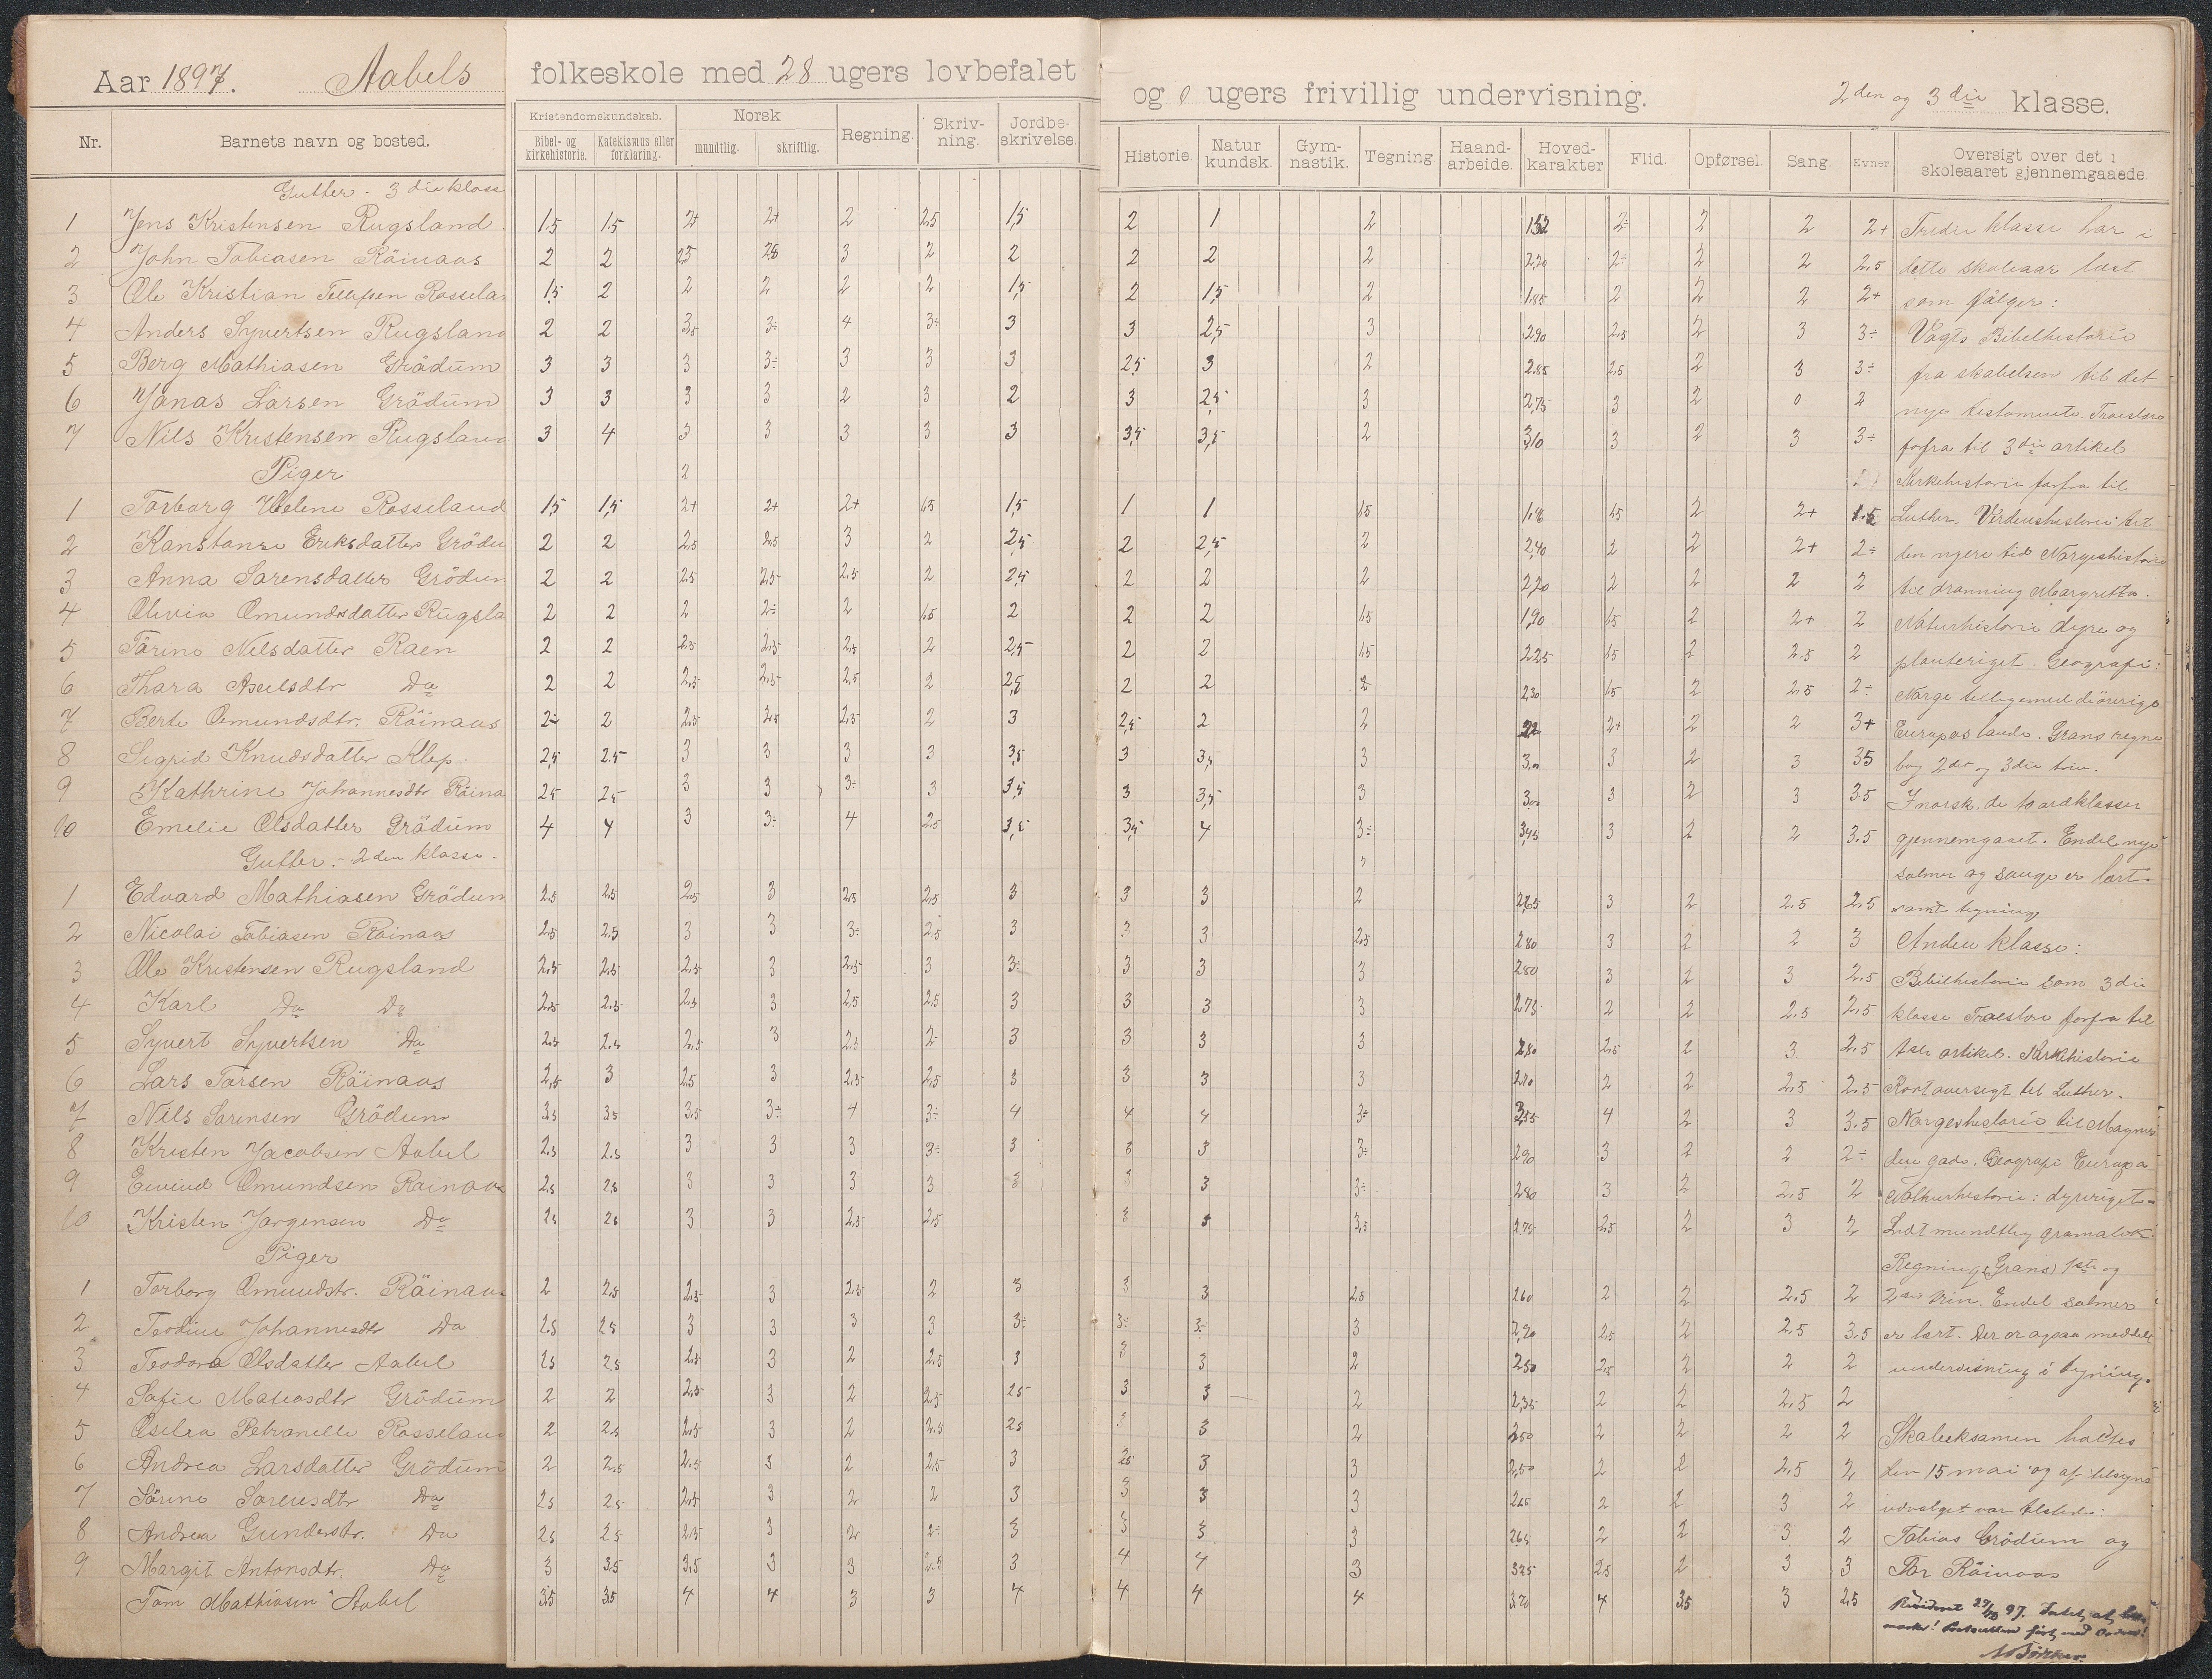 Aar 1897. Aabels folkeskole med 28 ugers lovbefalet og 0 ugers frivillig undervisning. 2den og 3die klasse.
Nr. Barnets navn og bosted. Kristendomskundskab. Bibel- og kirkehistorie. Katekismus eller forklaring. Norsk mundtlig. skriftlig. Regning. Skrivning. Jordbeskrivelse. Historie. Naturkundsk. Gymnastik. Tegning Haandarbeide. Hovedkarakter Flid. Opførsel. Sang. Evner. Oversigt over det i skoleaaret gjennemgaaede.
Gutter. 3die klasse
1 Jens Kristensen Rugsland 1.5 1.5 2+ 2+ 2 2.5 1,5 2 1 2 1.52 2÷ 2 2 2+ Tredie klasse har i
2 John Tobiasen Röinaas 2 2 2.5 2.8 3 2 2 2 2 2 2,20 2÷ 2 2 2.5 dette skoleaar læst
3 Ole Kristian Tellefsen Rosselan 1,5 2 2 2 2 2 1,5 2 1,5 2 1.85 2 2 2 2+ som fölger:
4 Anders Syvertsen Rugsland 2 2 3,5 3÷ 4 3÷ 3 3 2,5 3 2.90 2.5 2 3 3÷ Vogts Bibelhistorie
5 Berg Mathiasen Grödum 3 3 3 3÷ 3 3 3 2,5 3 2 2.85 2.5 2 3 3÷ fra skabelsen til det
6 Jonas Larsen Grödum 3 3 3 3 2 3 2 3 2,5 3 2,75 3 2 0 2 nye testamente. Troeslære
7 Nils Kristensen Rugsland 3 4 3 3 3 3 3 3,5 3,5 2 3,10 3 2 3 3÷ forfra til 3die artikel.
Piger 2 Kirkehistorie forfra til
1 Torborg Helene Rosseland 1,5 1,5 2+ 2+ 2+ 1.5 1,5 1 1 1.5 1.5 2 2+ 1.5 Luther. Verdenshistorie til
2 Konstanse Eriksdatter Grödu 2 2 2.5 2.5 3 2 2,5 2 2,5 2 2,40 2 2 2+ 2÷ den nyere tid Norgeshistorie
3 Anna Sorensdatter Grödun 2 2 2.5 2.5 2.5 2 2,5 2 2 2 2,20 2 2 2 2 til dronning Margretta.
4 Olivia Omundsdatter Rugsla 2 2 2 2÷ 2 1.5 2 2 2 1.5 1,90 1.5 2 2+ 2 Naturhistorie dyre og
5 Tärine Nilsdatter Raen 2 2 2.5 2.5 2.5 2 2,5 2 2 1.5 2.25 1.5 2 2.5 2 planteriget. Geografi:
6 Thora Axelsdtr Do 2 2 2.5 2.5 2.5 2 2,5 2 2 2 2,30 1.5 2 2.5 2÷ Norge tilligemed deövrige
7 Berte Omundsdtr. Röinaas 2÷ 2 2.5 2.5 2.5 2 3 2,5 2 2 2+ 2 2 3+ Europas lande. Grans regne
8 Sigrid Knudsdatter Klep. 2,5 2.5 3 3 3 3 3,5 3 3,5 3 3.00 3 2 3 3.5 bog 2det og 3die trin.
9 Kathrine Johannesdtr Röina 2,5 2,5 3 3 3÷ 3 3,5 3 3,5 3 3.00 3 2 3 3.5 I norsk, de 10 ordklasser
10 Emelie Olsdatter Grödum 4 4 3 3÷ 4 2.5 3,5 3,5 4 3÷ 3,45 3 2 2 3.5 gjennemgaaet. Endel nye
Gutter. - 2den klasse. salmer og sange er lært.
1 Edvard Mathiasen Grödum 2.5 2.5 2.5 3 2.5 2.5 3 3 3 2 2.65 3 2 2.5 2.5 samt tegning
2 Nicolai Tobiasen Röinaas 2.5 2.5 3 3 3÷ 2.5 3 3 3 2.5 2.80 3 2 2 3 Anden klasse:
3 Ole Kristensen Rugsland 2.5 2.5 2.5 3 2.5 3 3÷ 3 3 3 2.80 3 2 3 2.5 Bibelhistorie som 3die
4 Karl Do Do 2.5 2.5 2.5 3 2.5 2.5 3 3 3 3 2.75 2 2 2.5 2.5 klasse Troeslære forfra til
5 Syvert Syvertsen Do 2.5 2.5 2.5 3 2.5 2 3 3 3 3 2.80 2.5 2 3 2.5 1ste artikel. Kirkehistorie
6 Lars Torsen Röinaas 2,5 3 2.5 3 2.5 2.5 3 3 3 3 2.70 2 2 2.5 2.5 Kort oversigt til Luther.
7 Nils Sorensen Grödum 3.5 3.5 3.5 3÷ 4 3÷ 4 4 4 3÷ 3,55 4 2 3 3.5 Norgeshistorie til Magnus
8 Kristen Jacobsen Aabel 2.5 2.5 3 3 3 3÷ 3 3 3 3÷ 2.90 3 2 2 2÷ den gode. Geografi Europa
9 Eivind Omundsen Röinaas 2.5 2.5 3 3 3 3 3 3 3 3÷ 2.80 3 2 2.5 2 Nathurhistorie: dyreriget
10 Kristen Jorgensen Do 2.5 2.5 3 3 2.5 2.5 3 3 3,5 2.75 2.5 2 3 2 Lidt mundtlig gramatik
Piger Regning (Grans) 1ste og
1 Torborg Omundstr. Röinaas 2 2.5 2.5 3 2.5 2 3 3 3 2.5 2.60 2 2 2.5 2 2det trin. Endel salmer
2 Teodine Johannesdtr Do 2.5 2.5 3 3 3 3 3÷ 3÷ 3÷ 3 2,90 2.5 2 2.5 3.5 er lært. Der er ogsaa meddelt
3 Teodora Olsdatter Aabel 2.5 2.5 2.5 3 2 2.5 3 3 3 2 2.50 2.5 2 2 2 undervisning i tegning.
4 Sofie Mateasdtr Grödum 2 2 2.5 3 2 2.5 2.5 3 3 2 2,35 2 2 2.5 2
5 Oselia Petronelle Rosseland 2 2.5 2.5 3 2 2.5 2.5 3 3 2 2.50 2 2 2 2 Skoleeksamen holdtes
6 Andrea Larsdatter Grödum 2 2.5 2.5 3 2 2.5 3 2.5 3 3 2,50 2 2 2.5 2 den 15 mai og af tilsyns
7 Sörine Sorensdtr Do 2.5 2.5 2.5 3 2 2 3 3 3 3 2.65 2 2 3 2 udvalget var tilstede:
8 Andrea Gunderstr. Do 2.5 2.5 2.5 3 2 2 3 3 3 3 2.65 2 2 3 2 Tobias Grödum og
9 Margit Antonsdtr. Do 3 3.5 3.5 3 3 2.5 3 4 4 3 3.25 2.5 2 3 3 Tor Röinaas
Tom Mathiasen Aabel 3.5 3.5 4 4 3 3 4 4 4 4 3.70 4 3.5 3 2.5
Revideret 27/10 97. Intet at be-
mærke! Protocollen ført med Orden!